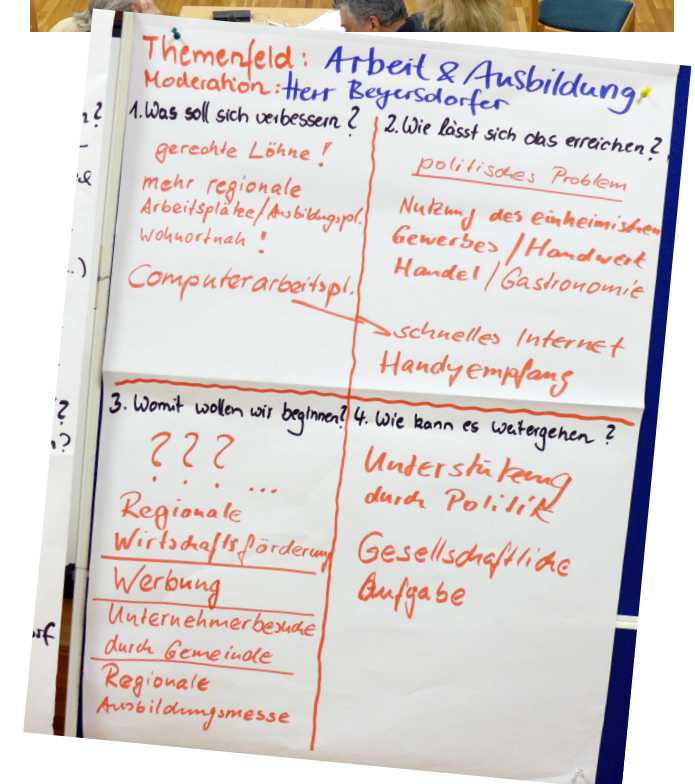 Themenfeld: Arbeit & Ausbildung
Moderation: Herr Beyersdorfer
1. Was soll sich verbessern?
gerechte Löhne!
mehr regionale
Arbeitsplätze/Ausbildungspl.
wohnortnah!
Computerarbeitspl.
2. Wie lässt sich das erreichen?
politisches Problem
Nutzung des einheimischen
Gewerbes/Handwerk
Handel/Gastronomie
schnelles Internet
Handyempfang
3. Womit wollen wir beginnen?
? ? ? ...
Regionale
Wirtschaftsförderung
Werbung
Unternehmerbesuche
durch Gemeinde
Regionale
Ausbildungsmesse
4. Wie kann es weitergehen?
Unterstützung
durch Politik
Gesellschaftliche
Aufgabe